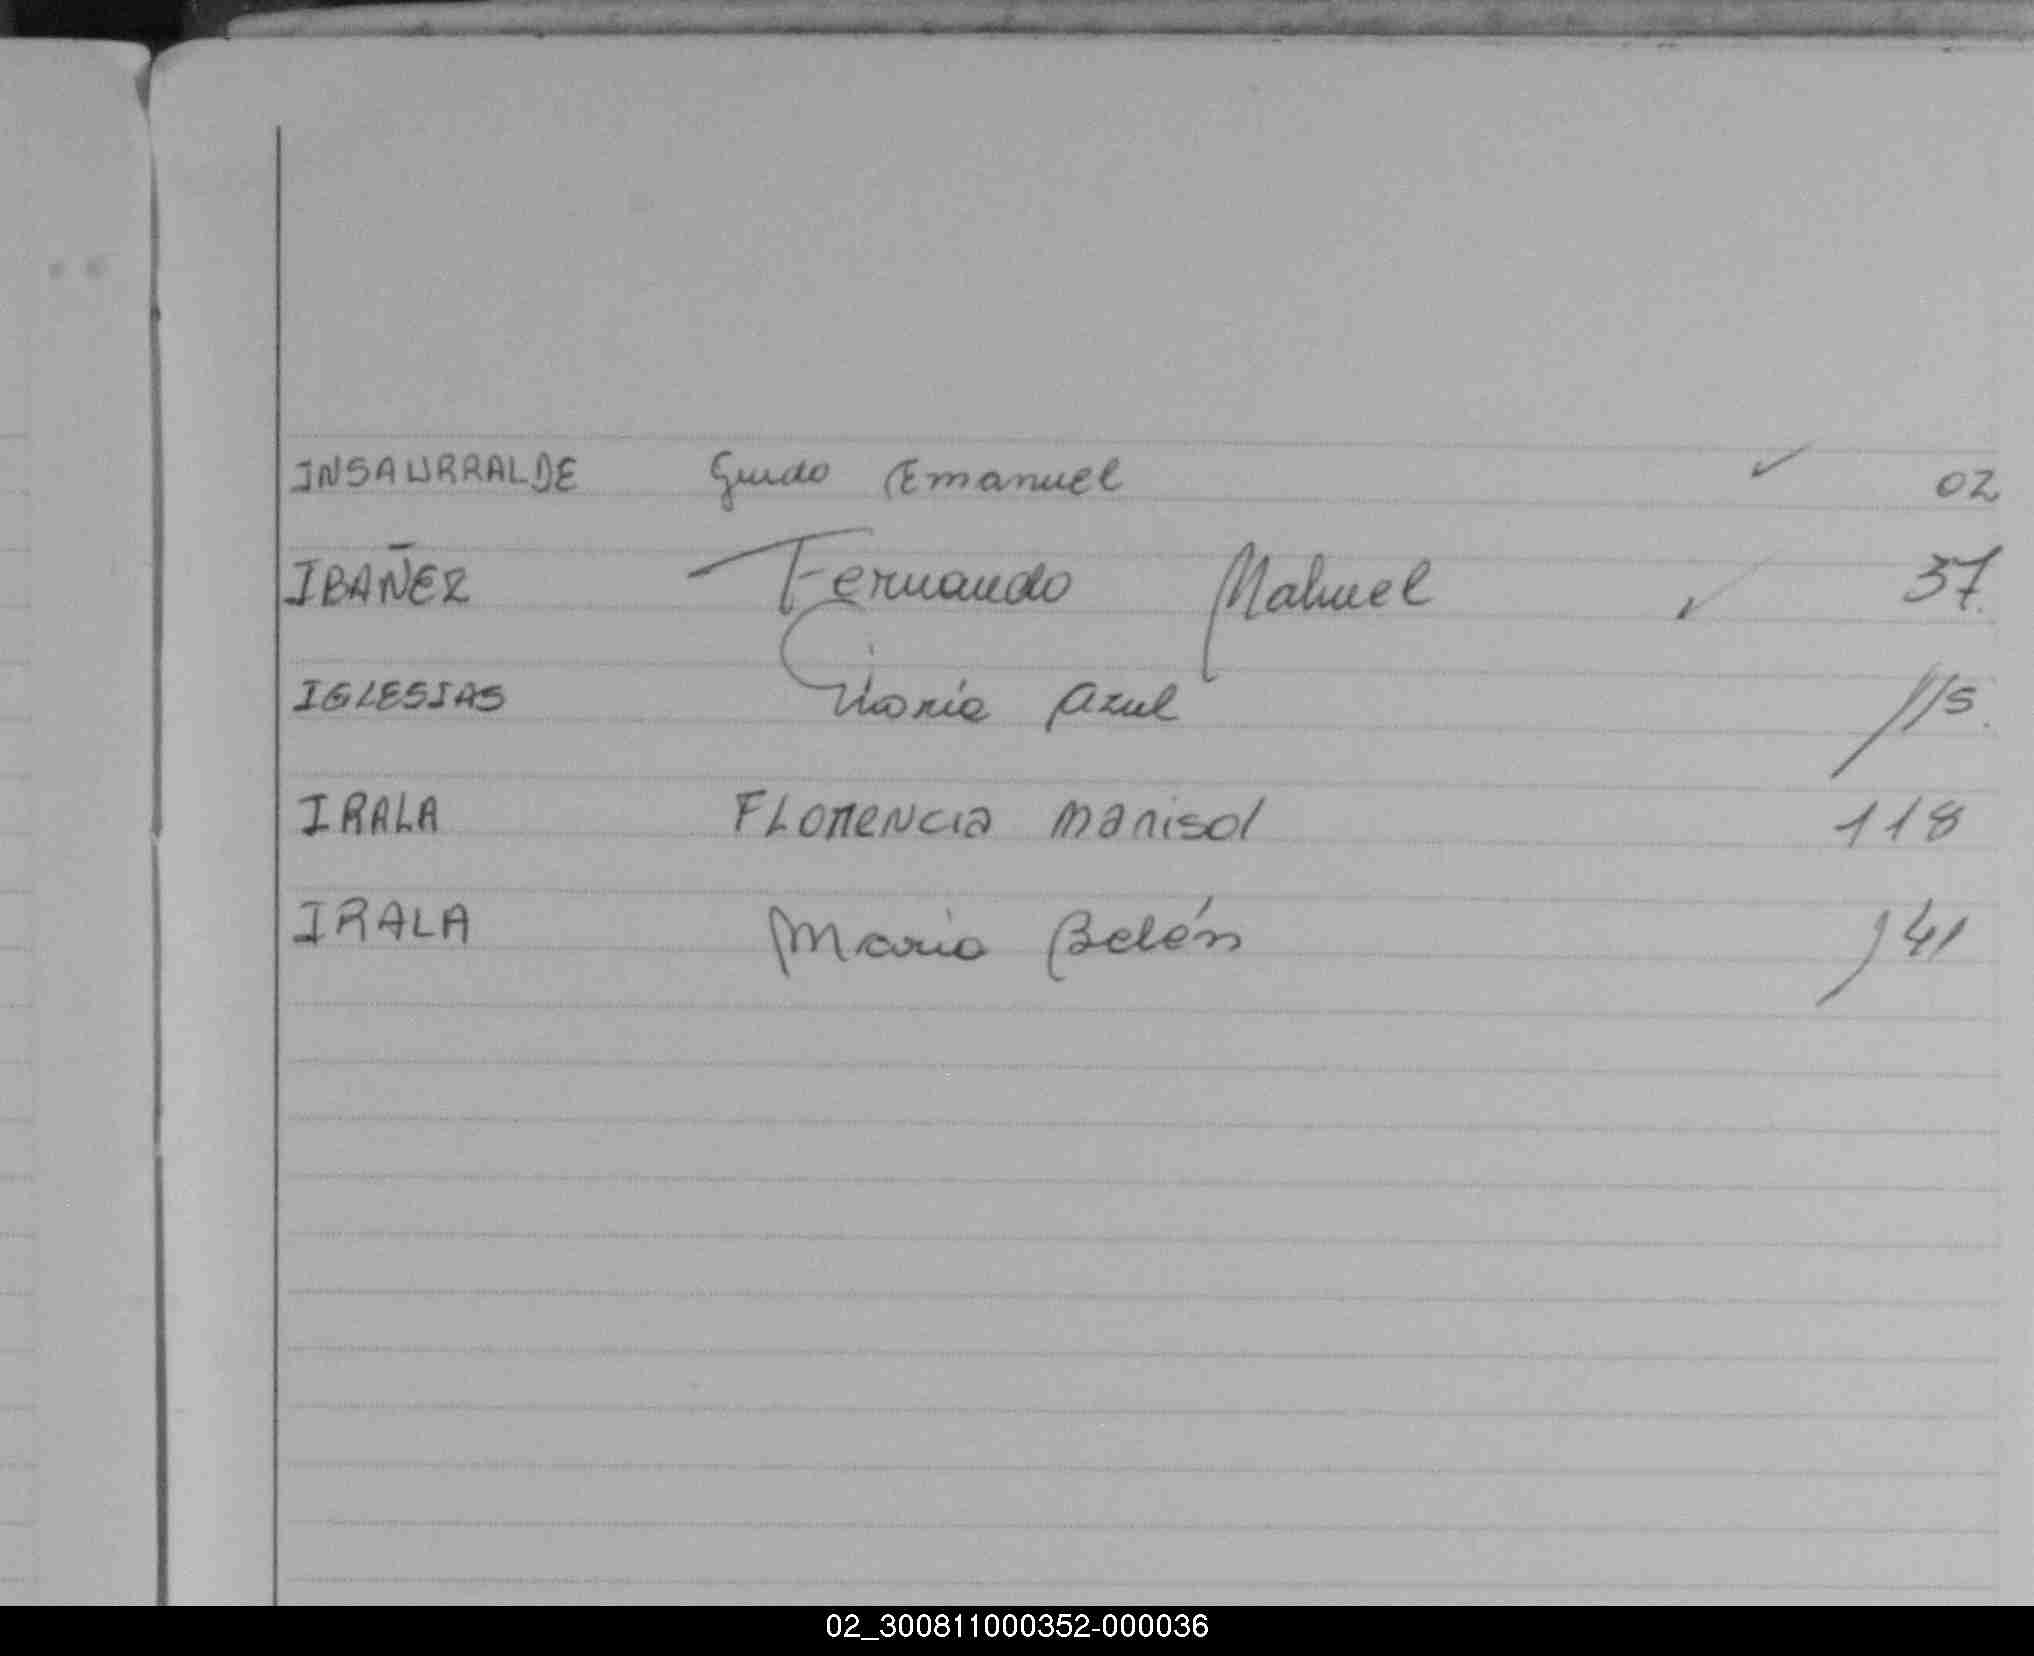 INSAURRALDE Guido Emanuel ✓ 02
IBAÑEZ Fernando Nahuel ✓ 37.
IGLESIAS María Azul 115.
IRALA FLORENCIA Marisol 118
IRALA Maria Belén 141
02_300811000352-000036